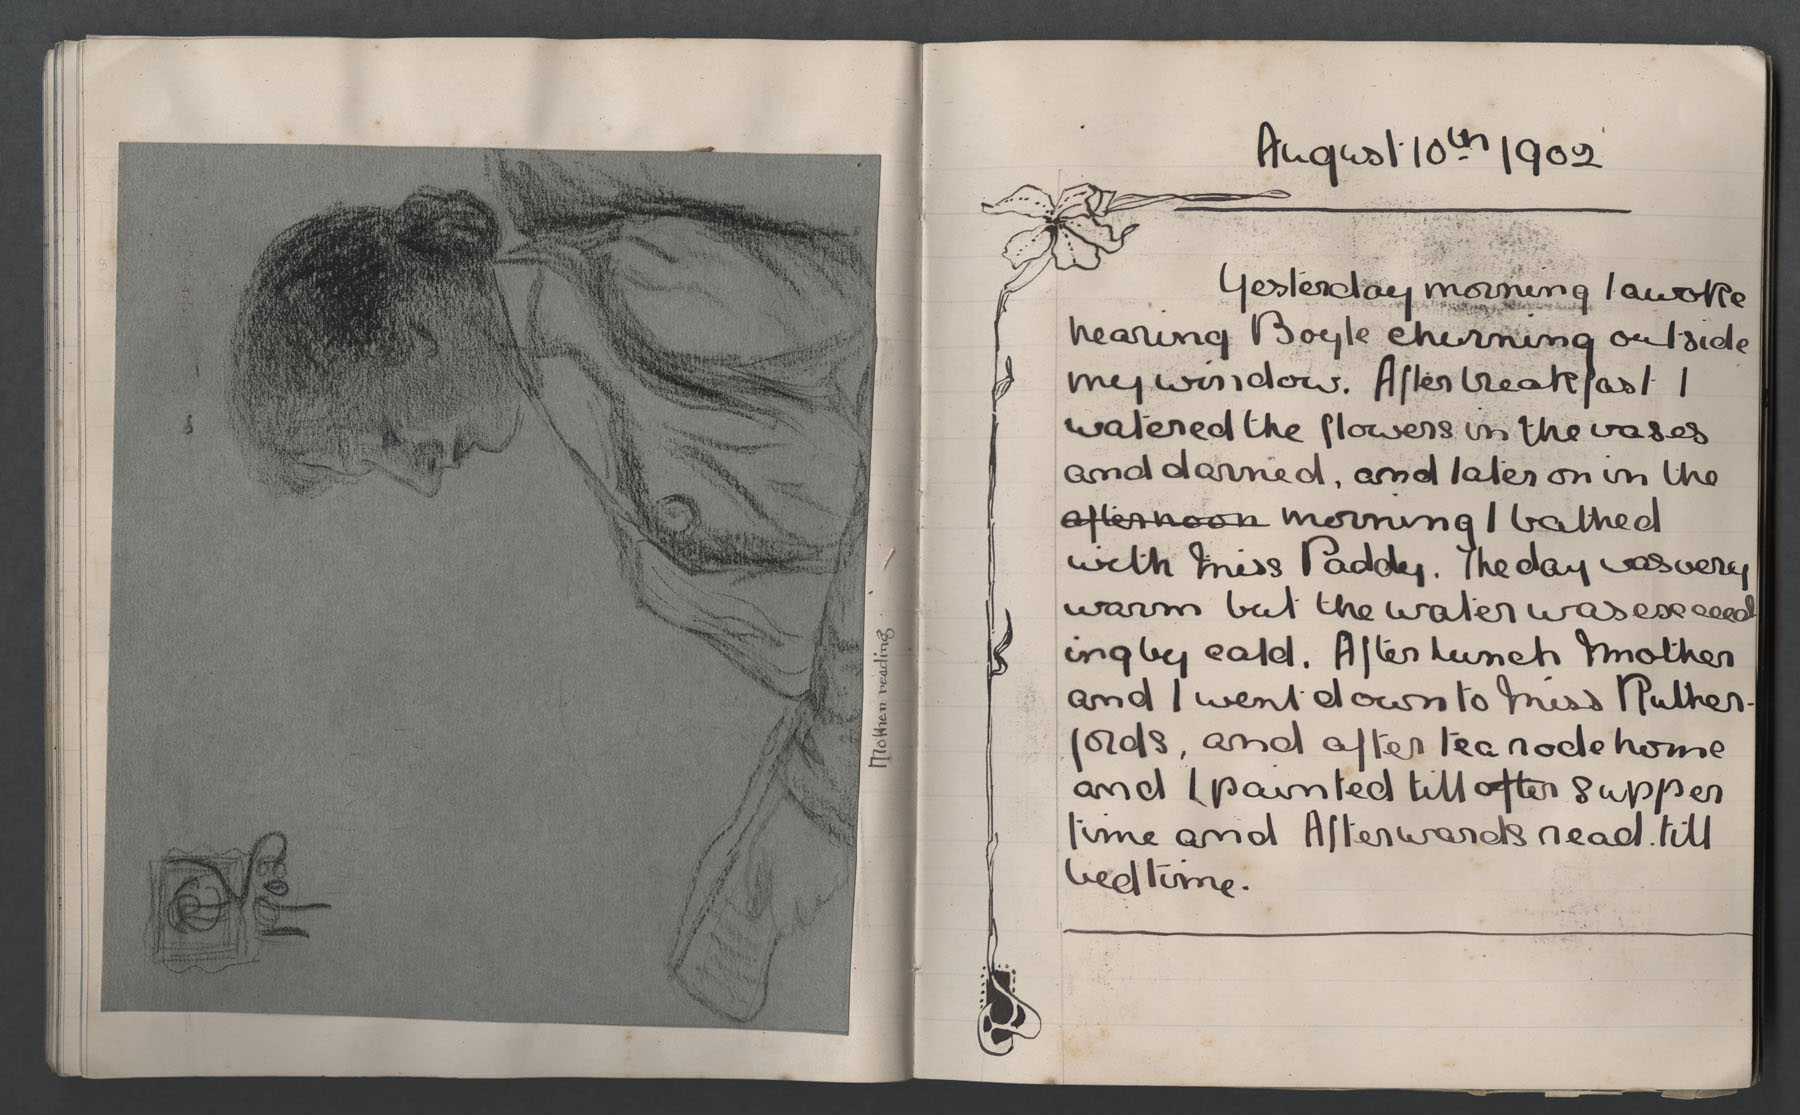 Mother reading
August 10th 1902
Yesterday morning I awoke
hearing Boyle churning outside
my window. After breakfast I
watered the flowers in the vases
and darned, and later on in the
afternoon morning I bathed
with Miss Paddy. The day was very
warm but the water was exceed
ingly cold. After lunch Mother
and I went down to Miss Ruther-
fords, and after tea rode home
and I painted till after supper
time and Afterwards read till
bedtime.